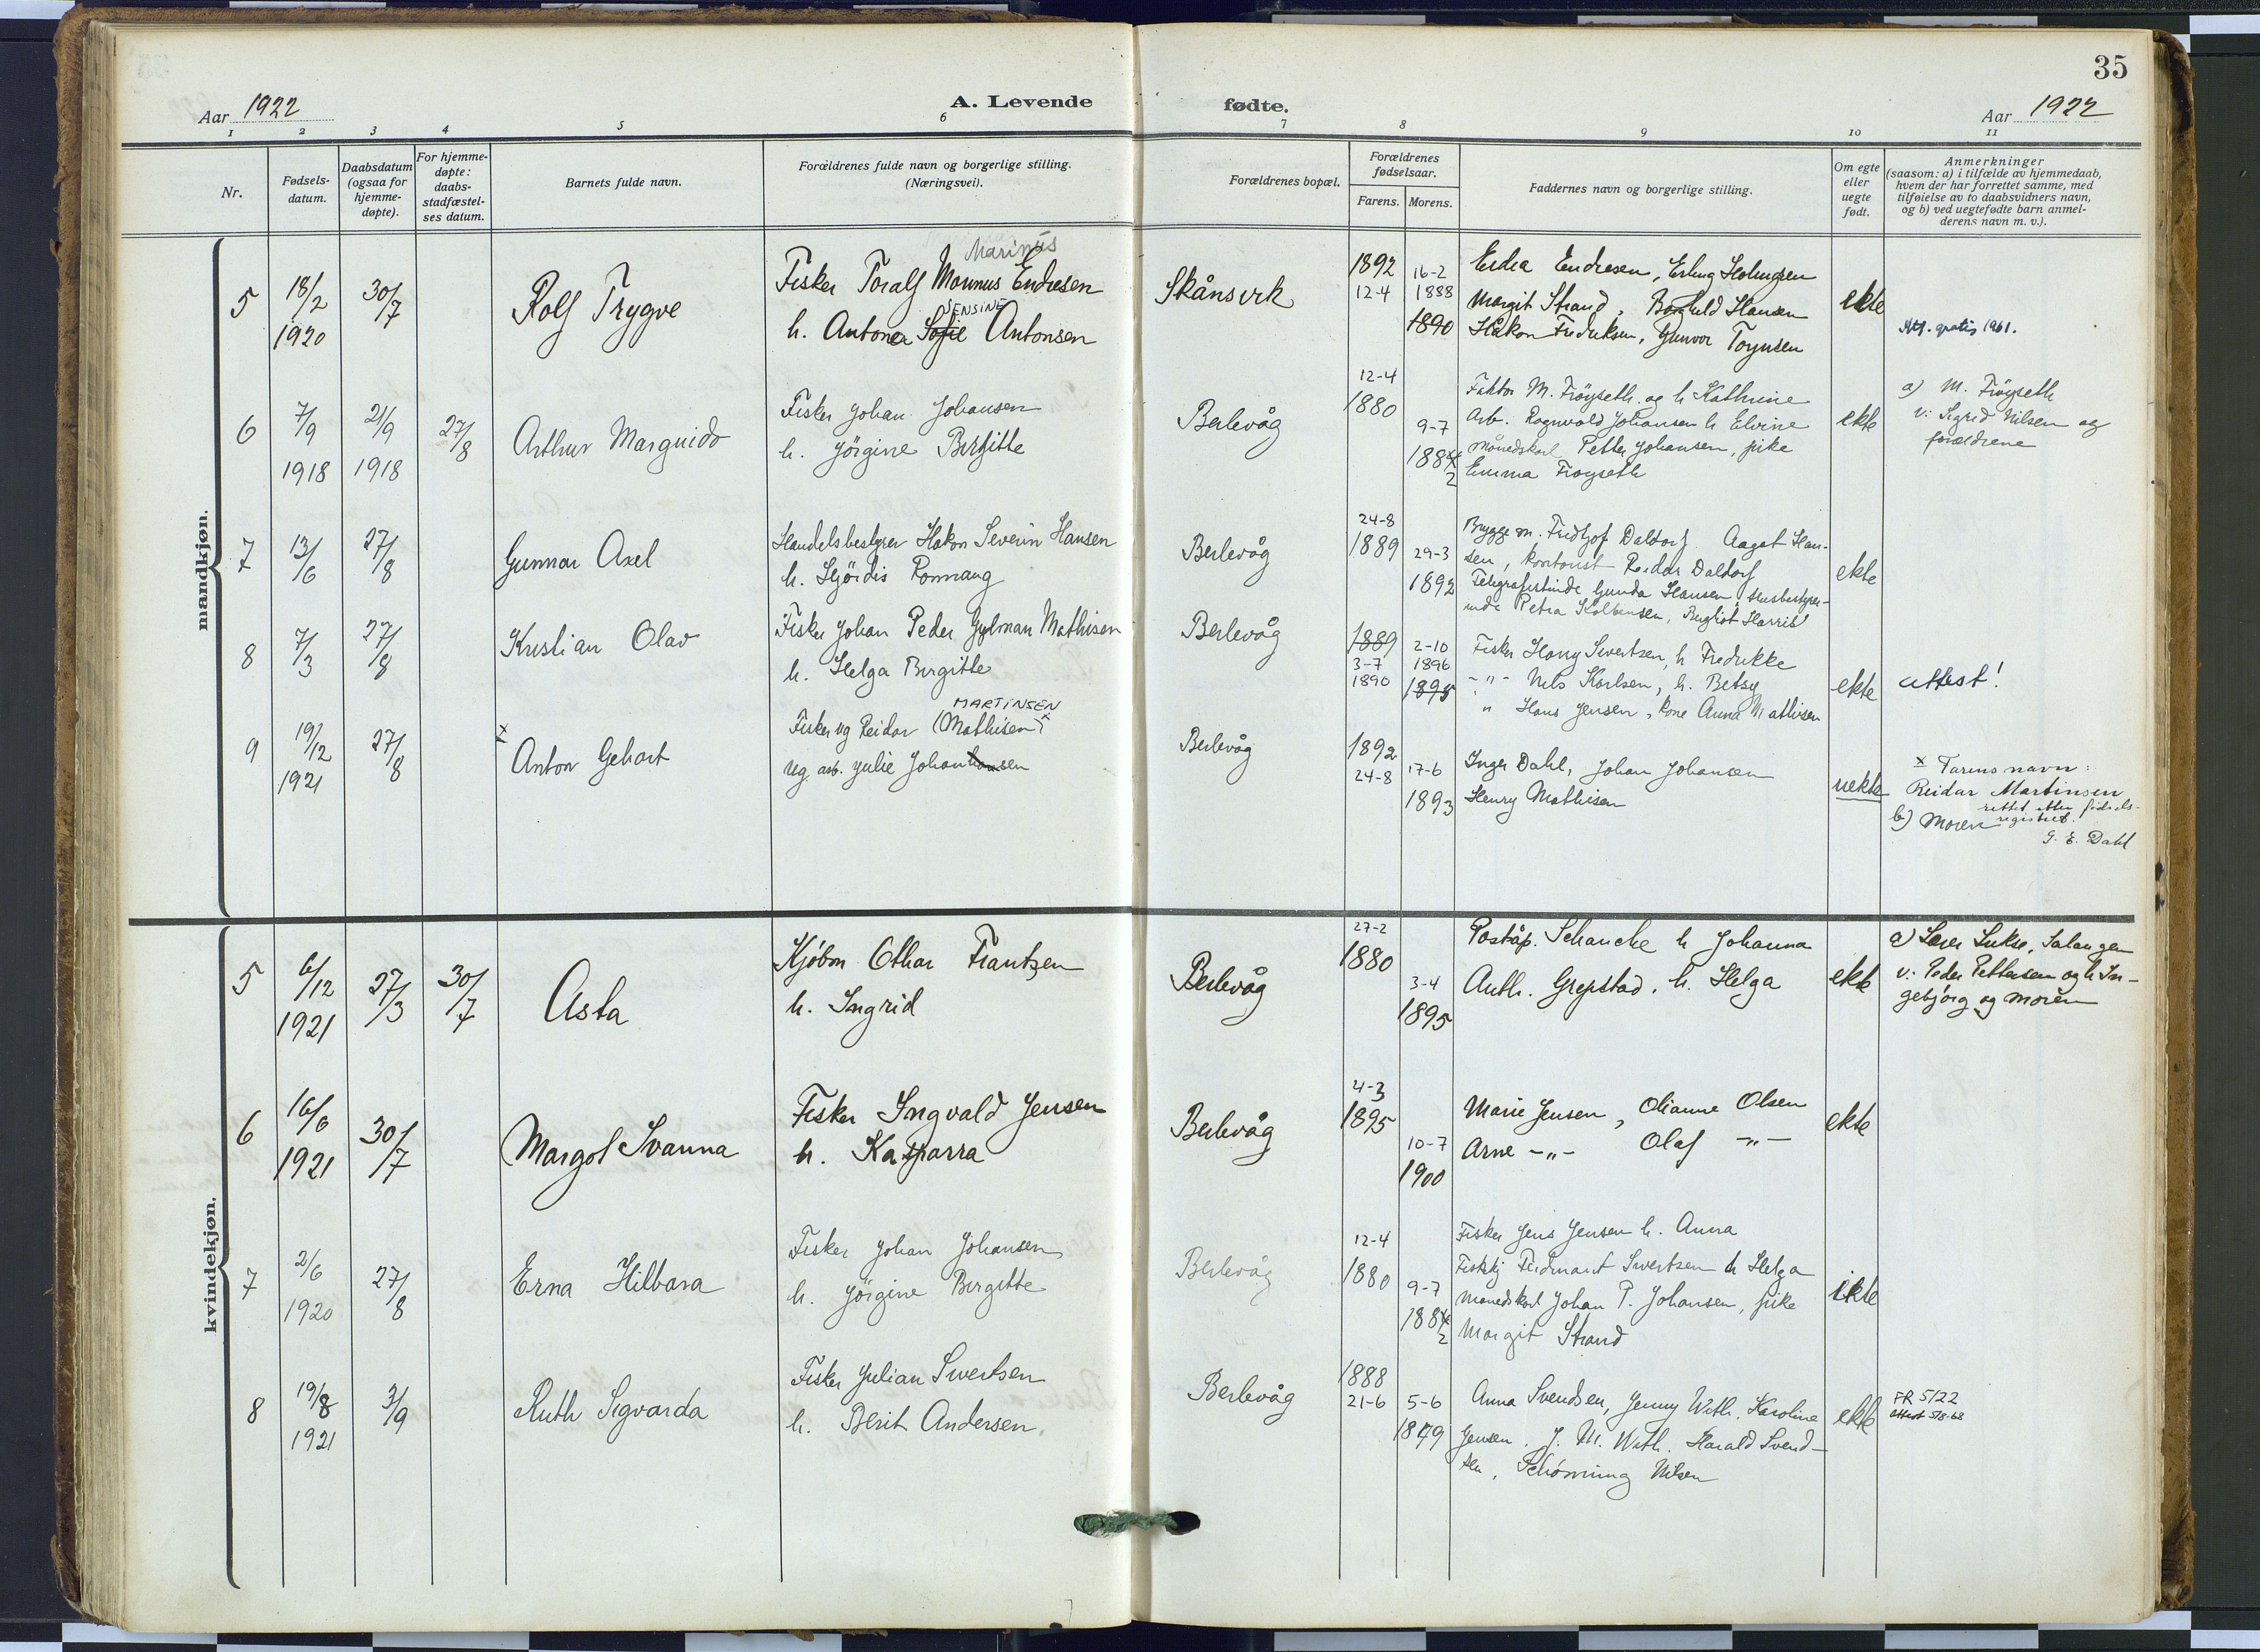 35
Aar 1922
A. Levende
fødte.
Aar 1922
1 2 3 4 5 6 7 8 9 10 11
Nr.
Fødsels-
datum.
Daabsdatum
(ogsaa for
hjemme-
døpte).
For hjemme-
døpte:
daabs-
stadfæstel-
ses datum.
Barnets fulde navn.
Forældrenes fulde navn og borgerlige stilling.
(Næringsvei).
Forældrenes bopæl.
Forældrenes
fødselsaar.
Farens. Morens.
Faddernes navn og borgerlige stilling.
Om egte
eller
uegte
født.
Anmerkninger
(saasom: a) i tilfælde av hjemmedaab,
hvem der har forrettet samme, med
tilføielse av to daabsvidners navn,
og b) ved uegtefødte barn anmel-
derens navn m. v.).
mandkjøn.
5
18/2
1920
30/7
Rolf Trygve
Marinus
Fisker Toralf Magnus Endresen
JENSINE
h. Antona Sofie Antonsen
Skånsvik
1892
12-4
16-2
1888
1890
Endresen, Erling Holmgren
Margit Strand, Borghild Hansen
Håkon Fredriksen, Gunvor
ekte
Att. gratis 1961.
6
7/9
1918
21/9
1918
27/8
Arthur Marguido
Fisker Johan Johansen
h. Jörgine Birgitte
Berlevåg
12-4
1880
9-7
1884
2
Faktor M. Fröyseth og h Kathrine
Arb. Ragnvald Johansen h Elvine
månedskarl Petter Johansen, pike
Emma Fröyseth
ekte
a) M. Fröyseth
v: Sigrid Nilsen og
forældrene
7
13/6
27/8
Gunnar Axel
Handelsbestyrer Håkon Severin Hansen
h. Hjördis Ronnang
Berlevåg
24-8
1889
29-3
1892
Brygge m. Fridtjof Daldorf Aagot Han-
sen, kontorist Reidar Daldorf
Telegrafistinde Gunda Hansen, Husbestyrer-
inde Petra Kolbensen, Harris
ekte
8
7/3
27/8
Kristian Olav
Fisker Johan Peder Gylman Mathisen
h. Helga Birgitte
Berlevåg
1889
3-7
1890
2-10
1896
1895
Fisker Harry Sivertsen, h Fredrikke
-"- Nils Karlsen, h. Betsy
" Hans Jensen, kone Anna Mathisen
ekte
attest!
9
19/12
1921
27/8
x
Anton Gehart
MARTINSEN
Fisker ug Reidar (Mathisen) x
ug. arb. Julie Johanhansen
Berlevåg
1892
24-8
17-6
1893
Inger Dahl, Johan Johansen
Henry Mathisen
uekte
x Farens navn:
Reidar Martinsen
rettet etter fødsels-
registret.
b) Moren
G. E. Dahl
kvindekjøn.
5
6/12
1921
27/3
30/7
Asta
Kjöbm Othar Frantzen
h. Ingrid
Berlevåg
27-2
1880
3-4
1895
Poståp. Schanche h Johanna
Anth. Grepstad, h. Helga
ekte
a) Salangen
v: Peder Pettersen og h In-
gebjørg og moren
6
16/6
1921
30/7
Margot Ivanna
Fisker Ingvald Jensen
h. Kasparra
Berlevåg
4-3
1895
10-7
1900
Marie Jensen, Olianne Olsen
Arne -"- Olaf -"-
ekte
7
2/6
1920
27/8
Erna Hilbara
Fisker Johan Johansen
h. Jörgine Birgitte
Berlevåg
12-4
1880
9-7
1884
2
Fisker Jens Jensen h. Anna
Ferdinant Sivertsen h Helga
månedskarl Johan P. Johansen, pike
Margit Strand
ekte
8
19/8
1921
3/9
Ruth Sigvarda
Fisker Julian Sivertsen
h. Berit Andersen
Berlevåg
1888
21-6
5-6
1879
Anna Svendsen, Jenny With, Karoline
Jensen, J. M. With, Harald Svend-
sen, Schönning Nilsen
ekte
FR 5/22
attest 5/8-68